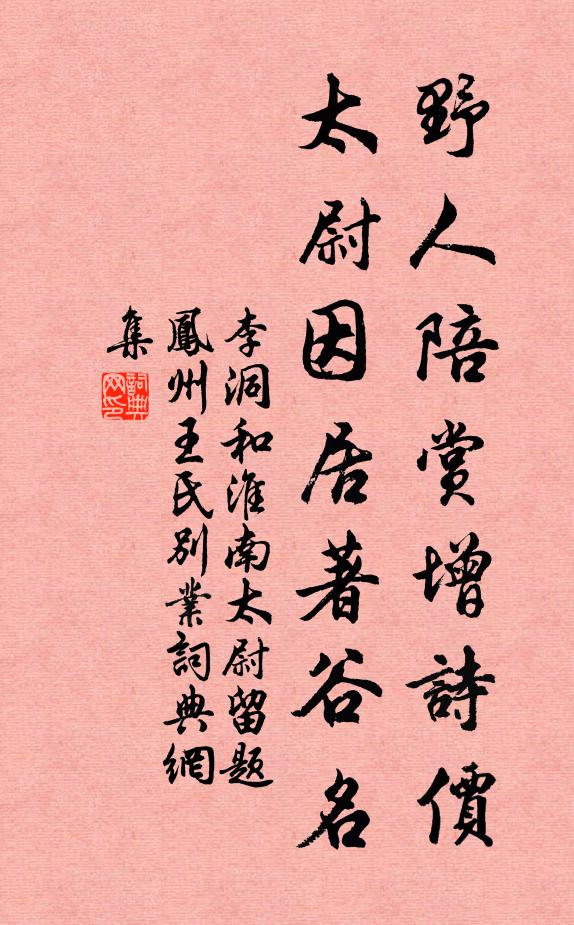 野人陪賞增詩價
太尉因居著谷名
李洞和淮南太尉留題
鳳州王氏別業詞典網
集
詞典
网印